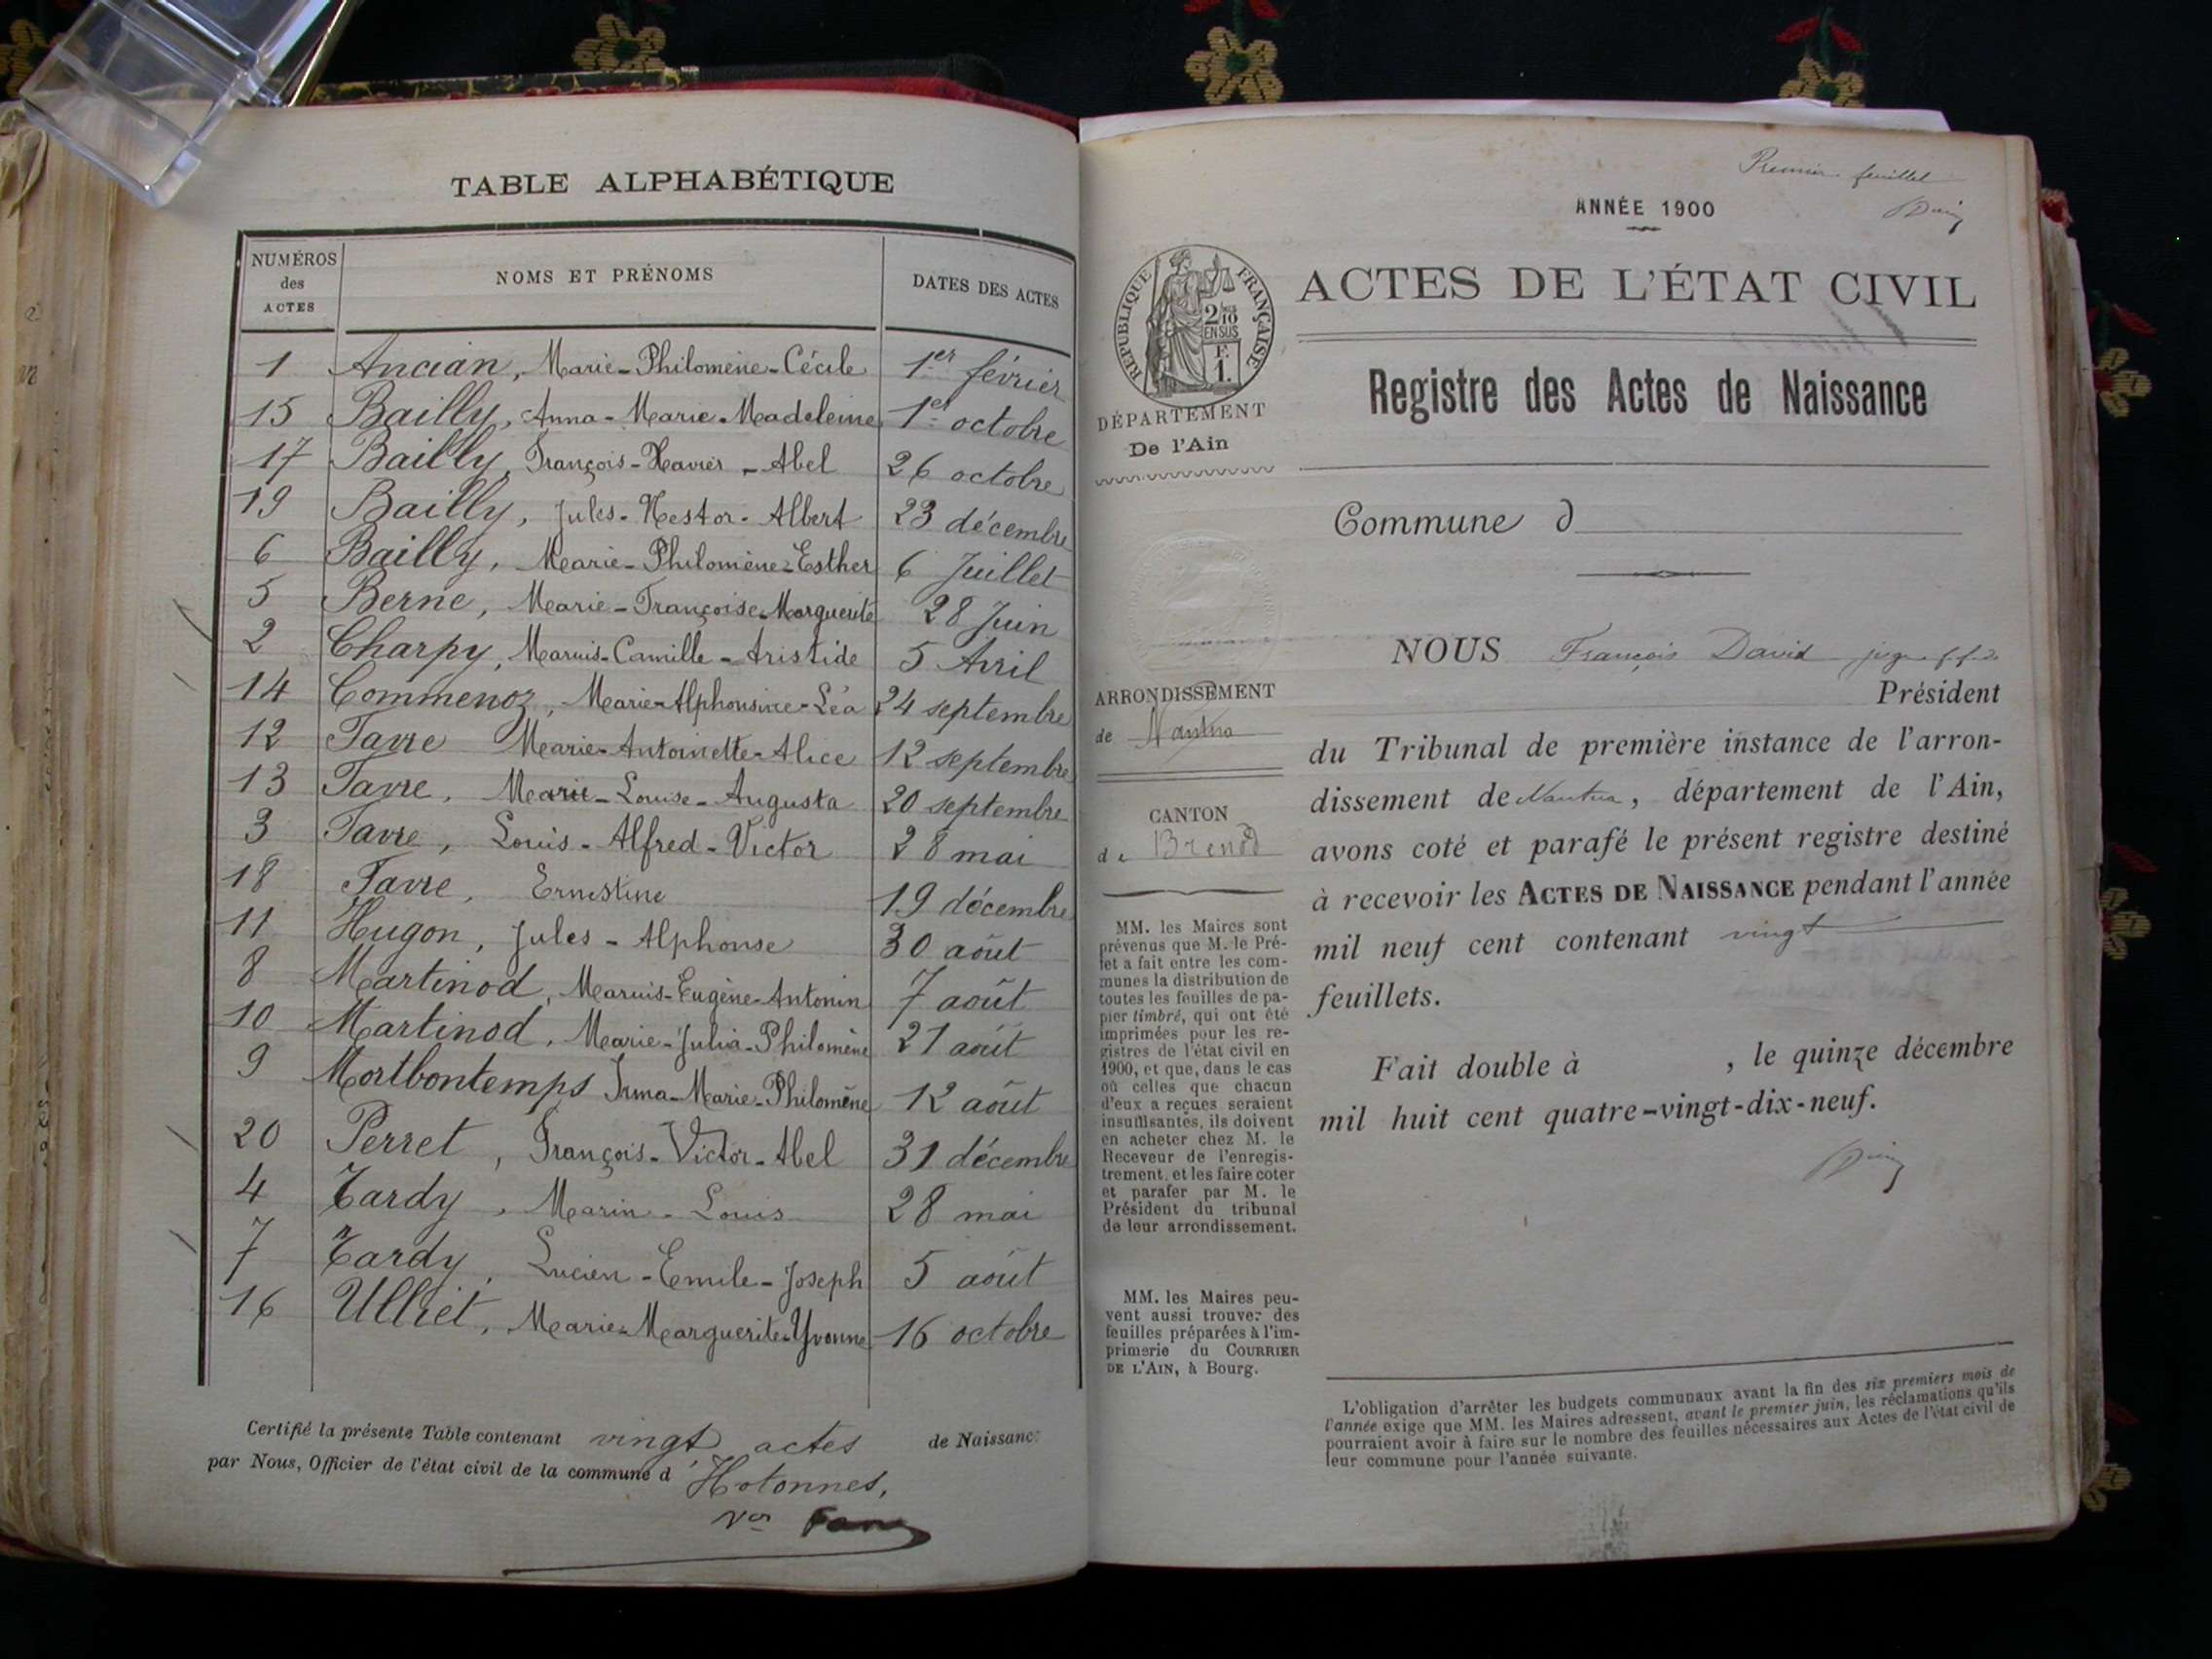 TABLE ALPHABÉTIQUE
NUMÉROS des ACTES
NOMS ET PRÉNOMS
DATES DES ACTES
1 Ancian, Marie-Philomène-Cécile 1er février
15 Bailly, Anna-Marie-Madeleine 1er octobre
17 Bailly, François-Xavier-Abel 26 octobre
19 Bailly, Jules-Nestor-Albert 23 décembre
6 Bailly, Marie-Philomène-Esther 6 Juillet
5 Berne, Marie-Françoise-Marguerite 28 Juin
2 Charpy, Marius-Camille-Aristide 5 Avril
14 Commenoz, Marie-Alphonsine-Léa 24 septembre
12 Favre Marie-Antoinette-Alice 12 septembre
13 Favre, Marie-Louise-Augusta 20 septembre
3 Favre, Louis-Alfred-Victor 28 mai
18 Favre, Ernestine 19 décembre
11 Hugon, Jules-Alphonse 30 août
8 Martinod, Marius-Eugène-Antonin 7 août
10 Martinod, Marie-Julia-Philomène 21 août
9 Mortbontemps Irma-Marie-Philomène 12 août
20 Perret, François-Victor-Abel 31 décembre
4 Tardy, Marin-Louis 28 mai
7 Tardy, Lucien-Emile-Joseph 5 août
16 Ulliet, Marie-Marguerite-Yvonne 16 octobre
Certifié la présente Table contenant vingt actes de Naissanc
par Nous, Officier de l'état civil de la commune d'Hotonnes,
Premier feuillet
ANNÉE 1900
RÉPUBLIQUE FRANÇAISE
2/10
EN SUS
F.
1.
ACTES DE L'ÉTAT CIVIL
DÉPARTEMENT
De l'Ain
Registre des Actes de Naissance
Commune d
ARRONDISSEMENT
de Nantua
CANTON
de Brenod
MM. les Maires sont
prévenus que M. le Pré-
fet a fait entre les com-
munes la distribution de
toutes les feuilles de pa-
pier timbré, qui ont été
imprimées pour les re-
gistres de l'état civil en
1900, et que, dans le cas
où celles que chacun
d'eux a reçues seraient
insuffisantes, ils doivent
en acheter chez M. le
Receveur de l'enregis-
trement, et les faire coter
et parafer par M. le
Président du tribunal
de leur arrondissement.
MM. les Maires peu-
vent aussi trouver des
feuilles préparées à l'im-
primerie du COURRIER
DE L'AIN, à Bourg.
NOUS François David juge f.f.de
Président
du Tribunal de première instance de l'arron-
dissement de Nantua, département de l'Ain,
avons coté et parafé le présent registre destiné
à recevoir les ACTES DE NAISSANCE pendant l'année
mil neuf cent contenant vingt
feuillets.
Fait double à , le quinze décembre
mil huit cent quatre-vingt-dix-neuf.
L'obligation d'arrêter les budgets communaux avant la fin des six premiers mois de
l'année exige que MM. les Maires adressent, avant le premier juin, les réclamations qu'ils
pourraient avoir à faire sur le nombre des feuilles nécessaires aux Actes de l'état civil de
leur commune pour l'année suivante.